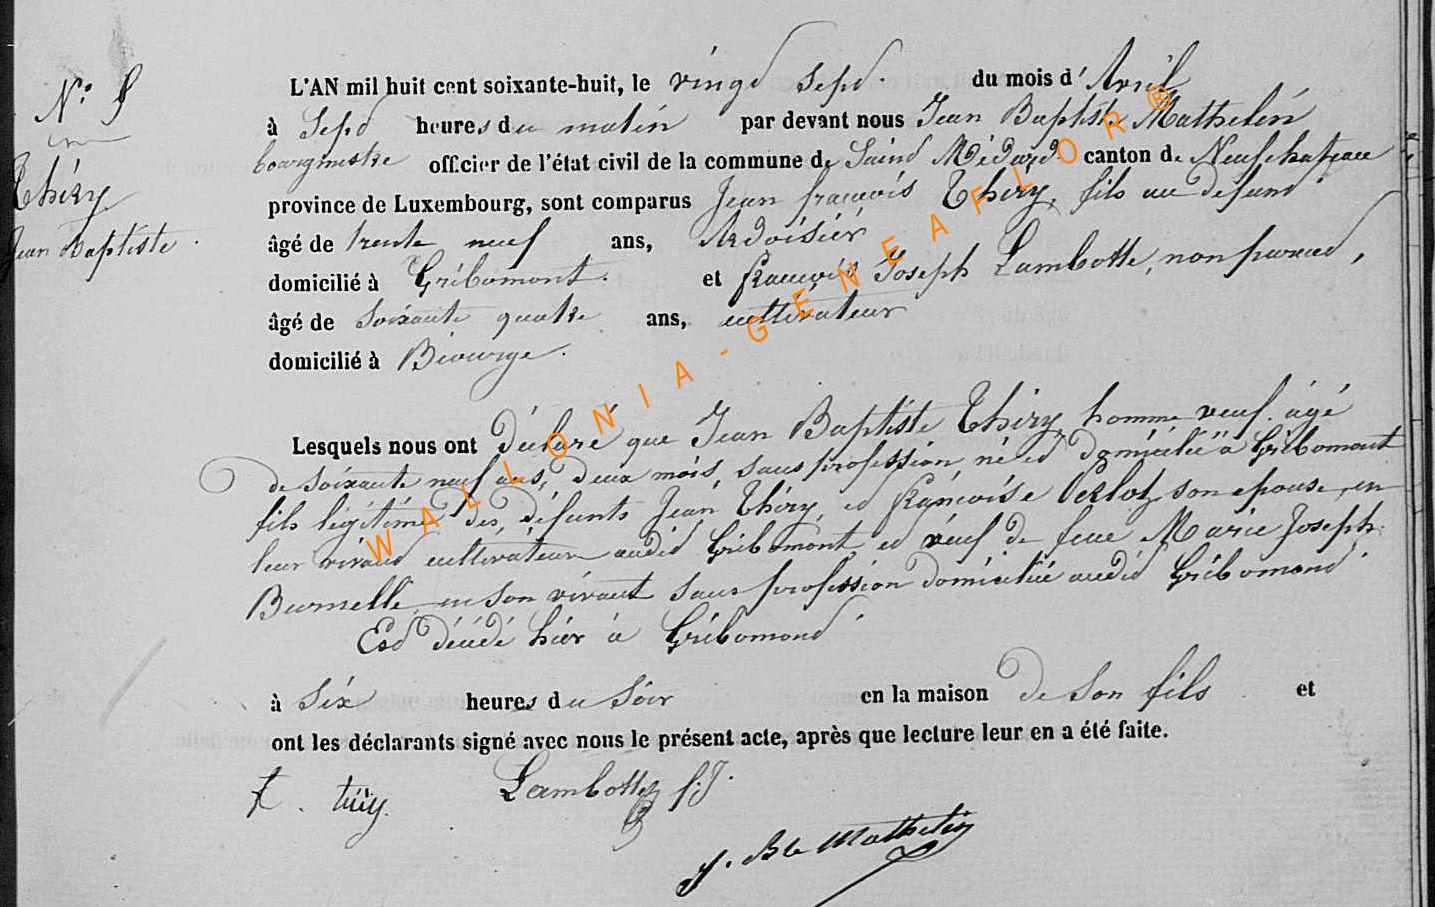 N.° 8
Thiry
Jean Baptiste
L'AN mil huit cent soixante-huit, le vingt sept du mois d'Avril
à Sept heures du matin par devant nous Jean Baptiste Mathelin
bourgmestre officier de l'état civil de la commune de Saint Médard canton de Neufchateau
province de Luxembourg, sont comparus Jean françois Thiry, fils au defunt
âgé de trente neuf ans, Ardoisier
domicilié à Gribomont. et françois Joseph Lambotte, non parent,
âgé de Soixante quatre ans, cultivateur
domicilié à Biourge.
Lesquels nous ont déclaré que Jean Baptiste Thiry, homme veuf. âgé
de soixante neuf ans, deux mois, sans profession, né et domicilié à Gribomont
fils légitime des défunts Jean Thiry, et françoise Perlot, son epouse, en
leur vivant cultivateurs audit Gribomont, et veuf de feue Marie Joseph
Burnelle, en son vivant sans profession domiciliée audit Gribomont
Est décédé hier à Gribomont
à Six heures du Soir en la maison de Son fils et
ont les déclarants signé avec nous le présent acte, après que lecture leur en a été faite.
Lambotte f. J.
J. Bte Mathelin
WALLONIA-GENEAFLOR®